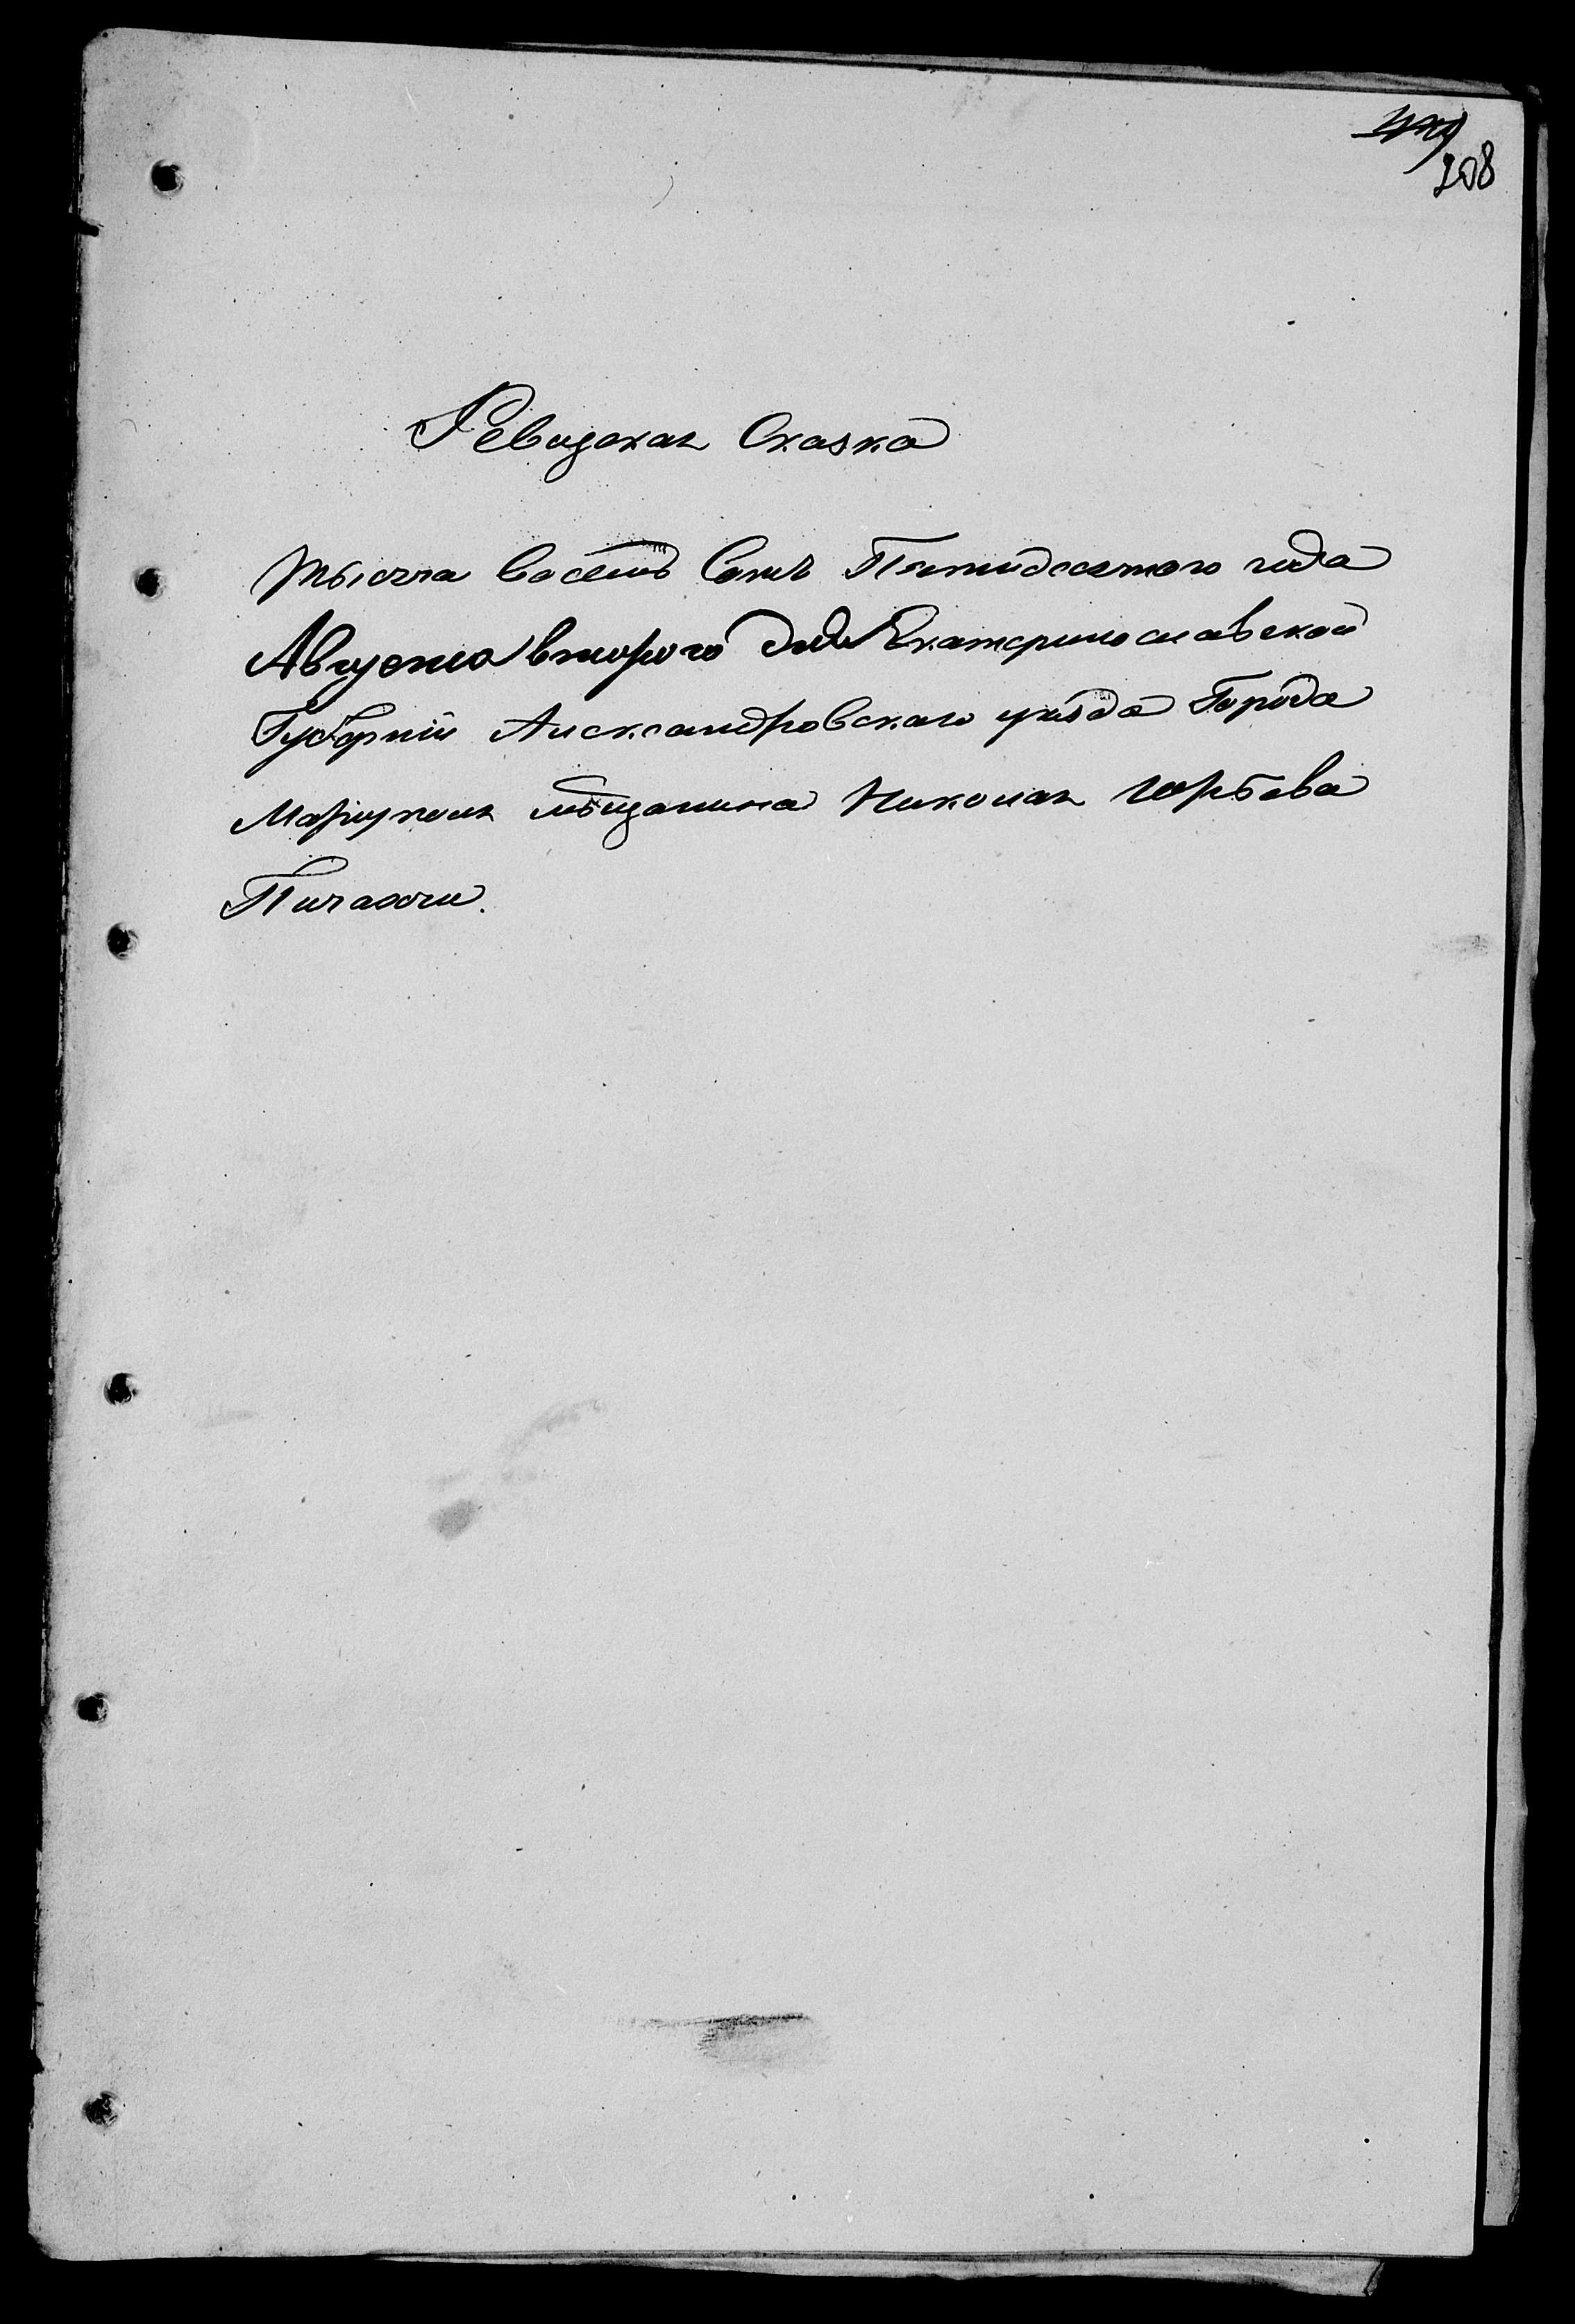 208
Ревизская Сказка
Тысяча восемь Сотъ Пятидесятого года
Августа второго дня Екатеринославской
Губерніи Александровскаго уѣзда Города
Маріуполя мѣщанина Николая Юрьева
Пичахчи.